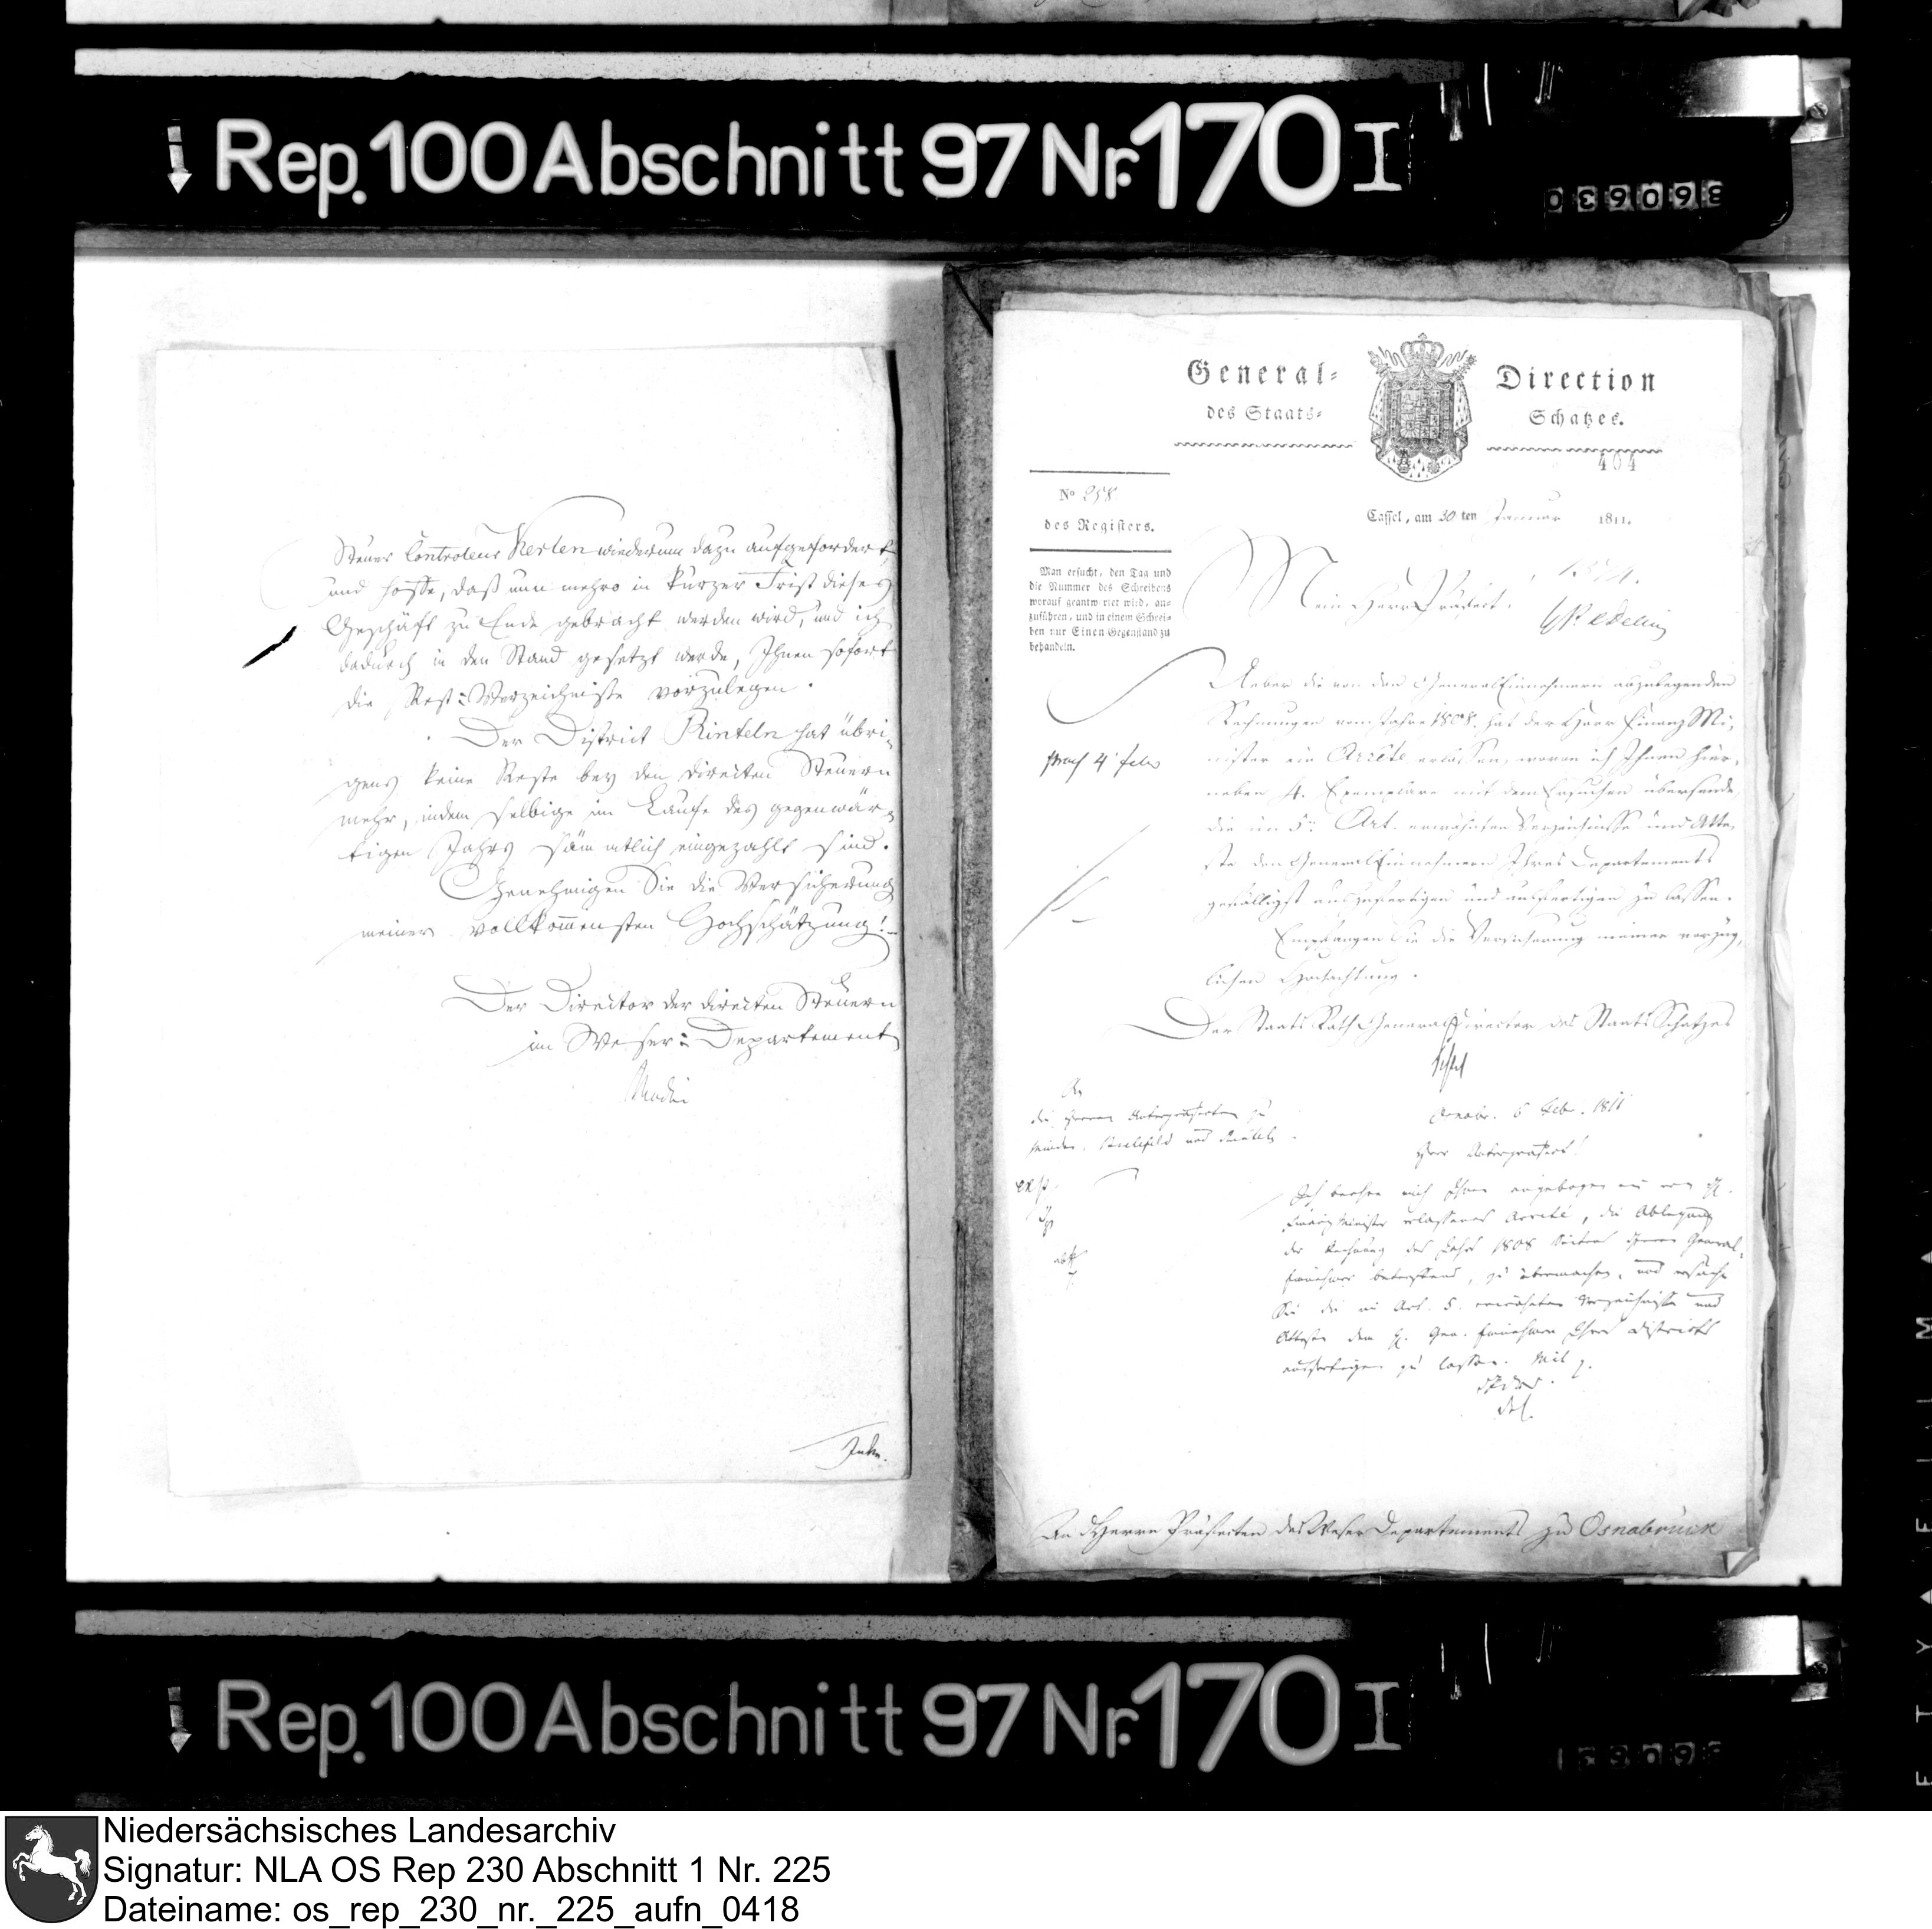 Rep. 100 Abschnitt 97 Nr. 170 I
0369098
Steuer Controleur Kerlen wiederum dazu aufgefordert,
und hoffe, daß nun mehro in kurzer Frist dieses
Geschäft zu Ende gebracht werden wird, und ich
dadurch in den Stand gesetzt werde, Ihnen sofort
die Rest-Verzeichniße vorzulegen.
Der District Rinteln hat übri-
gens keine Reste bey den directen Steuern
mehr, indem selbige im Laufe des gegenwär-
tigen Jahrs sämmtlich eingezahlt sind.
Genehmigen Sie die Versicherung
meiner vollkom̄ensten Hochschätzung!
Der Director der directen Steuern
im Weser-Departement
General-Direction
des Staats-Schatzes.
404
No 258
des Registers.
Man ersucht, den Tag und
die Nummer des Schreibens
worauf geantwortet wird, an-
zuführen, und in einem Schrei-
ben nur Einen Gegenstand zu
behandeln.
Cassel, am 30 ten Januar 1811.
Mein Herr Präfect!
Ueber die von den General Einnehmern abzulegenden
Rechnungen vom Jahre 1808. hat der Herr Finanz Mi-
nister ein Arrêté erlassen, wovon ich Ihnen hier-
neben 4. Exemplare mit dem Ersuchen übersende,
die im 5n Art. erwähnten Verzeichnisse und Atte-
ste den General Einnehmern Ihres Departements
gefälligst auszufertigen und ausfertigen zu lassen.
Empfangen Sie die Versicherung meiner vorzüg-
lichen Hochachtung.
Der Staats Rath General Director des Staats Schatzes
An
die Herren Unterpräfecten zu
Minden, Bielefeld und
Osnabr. 6 Feb. 1811
Herr Unterpräfect!
Ich beehre mich Ihnen angebogen ein vom H.
Finanz Minister erlassenes Arreté, die Ablegung
der Rechnung des Jahrs 1808 Seitens Herrn General-
Einnehmer betreffend, zu übermachen, und ersuche
Sie die im Art. 5. erwähnten Verzeichnisse und
Atteste dem H. Gen. Einnehmer Ihres Districts
ausfertigen zu lassen. Mit
An d Herrn Präfecten des Weser Departements zu Osnabrück
Rep. 100 Abschnitt 97 Nr. 170 I
Niedersächsisches Landesarchiv
Signatur: NLA OS Rep 230 Abschnitt 1 Nr. 225
Dateiname: os_rep_230_nr._225_aufn_0418